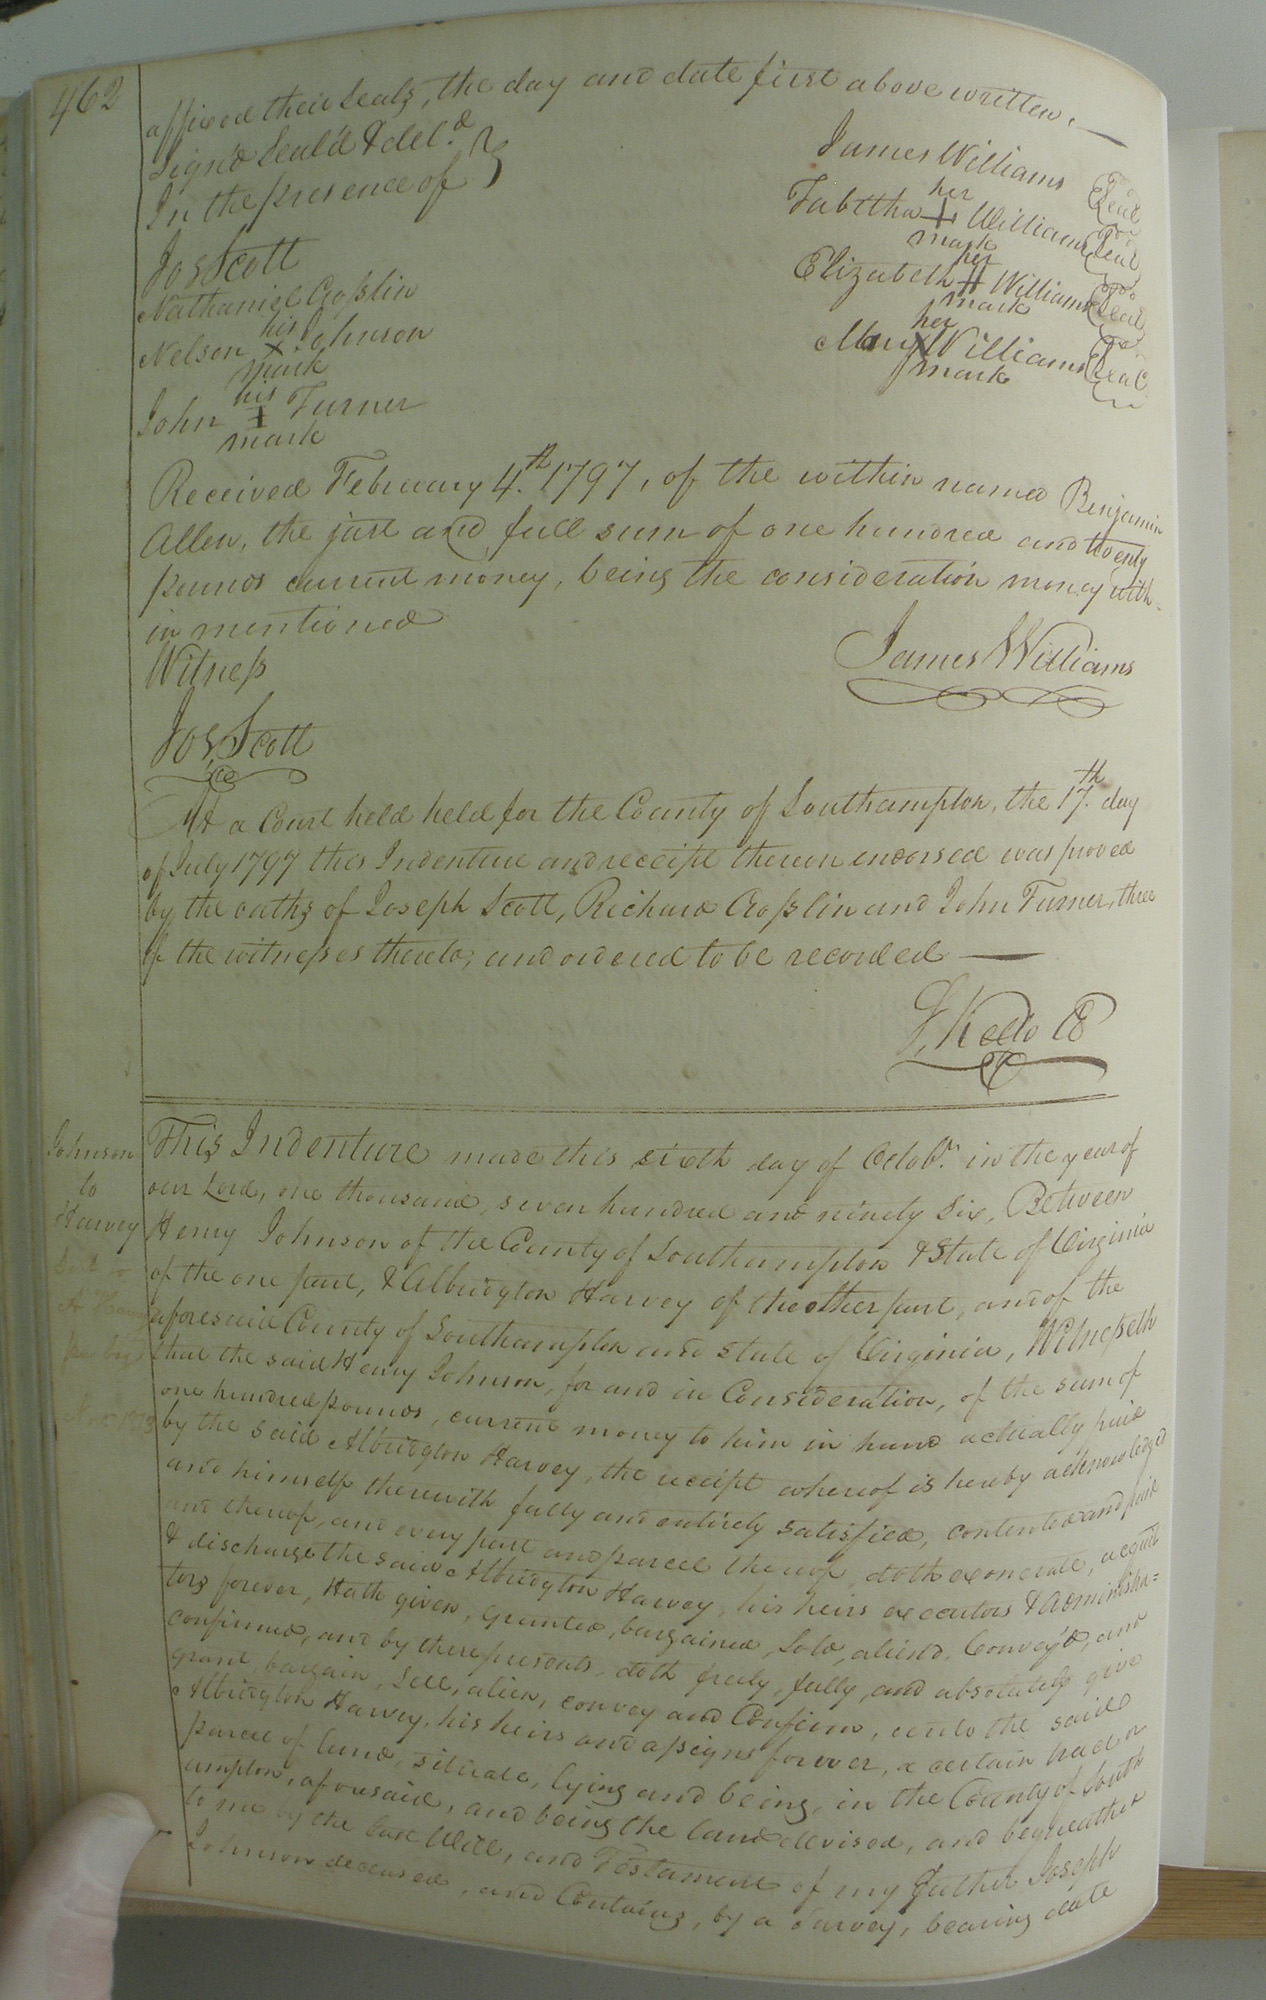 462
affixed their Seals, the day and date first above written.
Sign'd Seal'd & del.d
In the presence of
James Williams Seal
her
Tabitha + Williams Seal
mark
her
Elizabeth H Williams Seal
mark
her
Mary X Williams Seal
mark
Jos Scott
Nathaniel Croßlin
his
Nelson X Johnson
mark
his
John I Turner
mark
Received February 4.th 1797, of the within named Benjamin
Allen, the just and full sum of one hundred and twenty
pounds current money, being the consideration money with-
in mentioned
Witneß
James Williams
Jos, Scott
At a Court held held for the County of Southampton, the 17.th day
of July 1797 this Indenture and receipt thereon endorsed was proved
by the oaths of Joseph Scott, Richard Croßlin and John Turner, three
of the witneßes thereto, and ordered to be recorded
S, Kello CC
Johnson
to
Harvey
This Indenture made this sixth day of Octob.r in the year of
our Lord, one thousand, seven hundred and ninety six, Between
Henry Johnson of the County of Southampton & State of Virginia
of the one part, & Albridgton Harvey of the other part, and of the
aforesaid County of Southampton and State of Virginia, Witneßeth
that the said Henry Johnson, for and in Consideration, of the sum of
one hundred pounds, current money to him in hand actually paid
by the said Albridgton Harvey, the receipt whereof is hereby acknowledged
and himself therewith fully and entirely satisfied, contented and paid
and thereof, and every part and parcel thereof, doth exonerate, acquit
& discharge the said Albridgton Harvey, his heirs executors & Administra=
tors forever, Hath given, granted, bargained, Sold, alien'd, Convey'd, and
confirmed, and by these presents, doth freely, fully, and absolutely give
grant, bargain, Sell, alien, convey and Confirm, unto the said
Albridgton Harvey, his heirs and aßigns forever, a certain tract or
parcel of land, situate, lying and being, in the County of South
ampton, aforesaid, and being the land devised, and bequeathed
to me by the last Will, and Testament of my Father Joseph
Johnson deceased, and Contains, by a Survey, bearing date